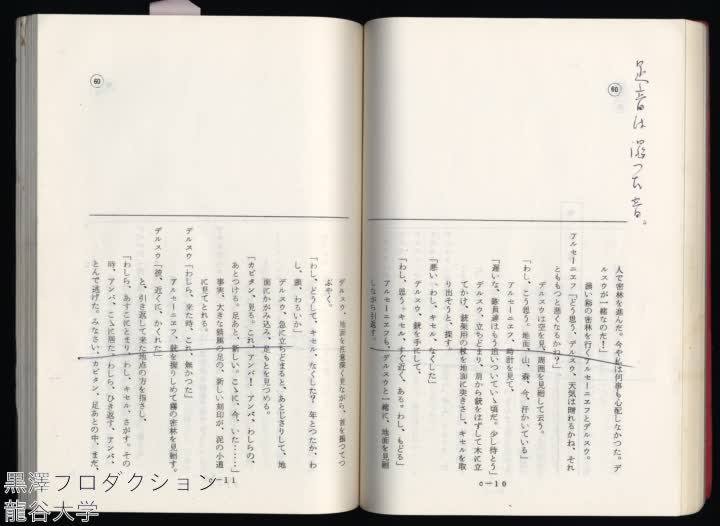 足音は湿った音。
60
人で密林を進んだ。今や私は何事も心配しなかった。デ
ルスウが一緒なのだ！
薄い霧の密林を行くアルセーニエフとデルスウ。
アルセーニエフ「どう思う、デルスウ、天気は晴れるかね、それ
とももっと悪くなるかね？」
デルスウは空を見、周囲を見廻して云う。
「わし、こう思う。地面、山、森、今、汗かいている」
アルセーニエフ、時計を見て、
「遅いな、隊員達はもう追いついていい頃だ。少し待とう」
デルスウ、立ちどまり、肩から銃をはずして木に立
てかけ、銃架用の杖を地面に突きさし、キセルを取
り出そうと、探す。
「悪い、わし、キセル、なくした」
デルスウ、銃を手にして、
「わし、思う。キセル、すぐ近く、ある。わし、もどる」
アルセーニエフも、デルスウと一緒に、地面を見
しながら引返す。
c—10
60
デルスウ、地面を注意深く見ながら、首を振ってつ
ぶやく。
「わし、どうして、キセル、なくした？ 年とったか、わ
し、頭、わるいか」
デルスウ、急に立ちどまると、あとじさりして、地
面にかがみ込み、足もとを見つめる。
「カピタン、見る。これ、アンバ！ アンバ、わしらの、
あとつける。足あと、新しい。こゝに、今、いた……」
事実、大きな猫属の足の、新しい刻印が、泥の小道
に見てとれる。
デルスウ「わしら、来た時、これ、無かった」
アルセーニエフ、銃を握りしめて霧の密林を見廻す。
デルスウ「彼、近くに、かくれた」
と、引き返して来た地点の方を指さし、
「わしら、あすこにとまり、わし、キセル、さがす。その
時、アンバ、こゝに居た。わしら、ひき返す、アンバ、
とんで逃げた。みなさい、カピタン、足あとの中、まだ、
c—11
黒澤プロダクション
龍谷大学